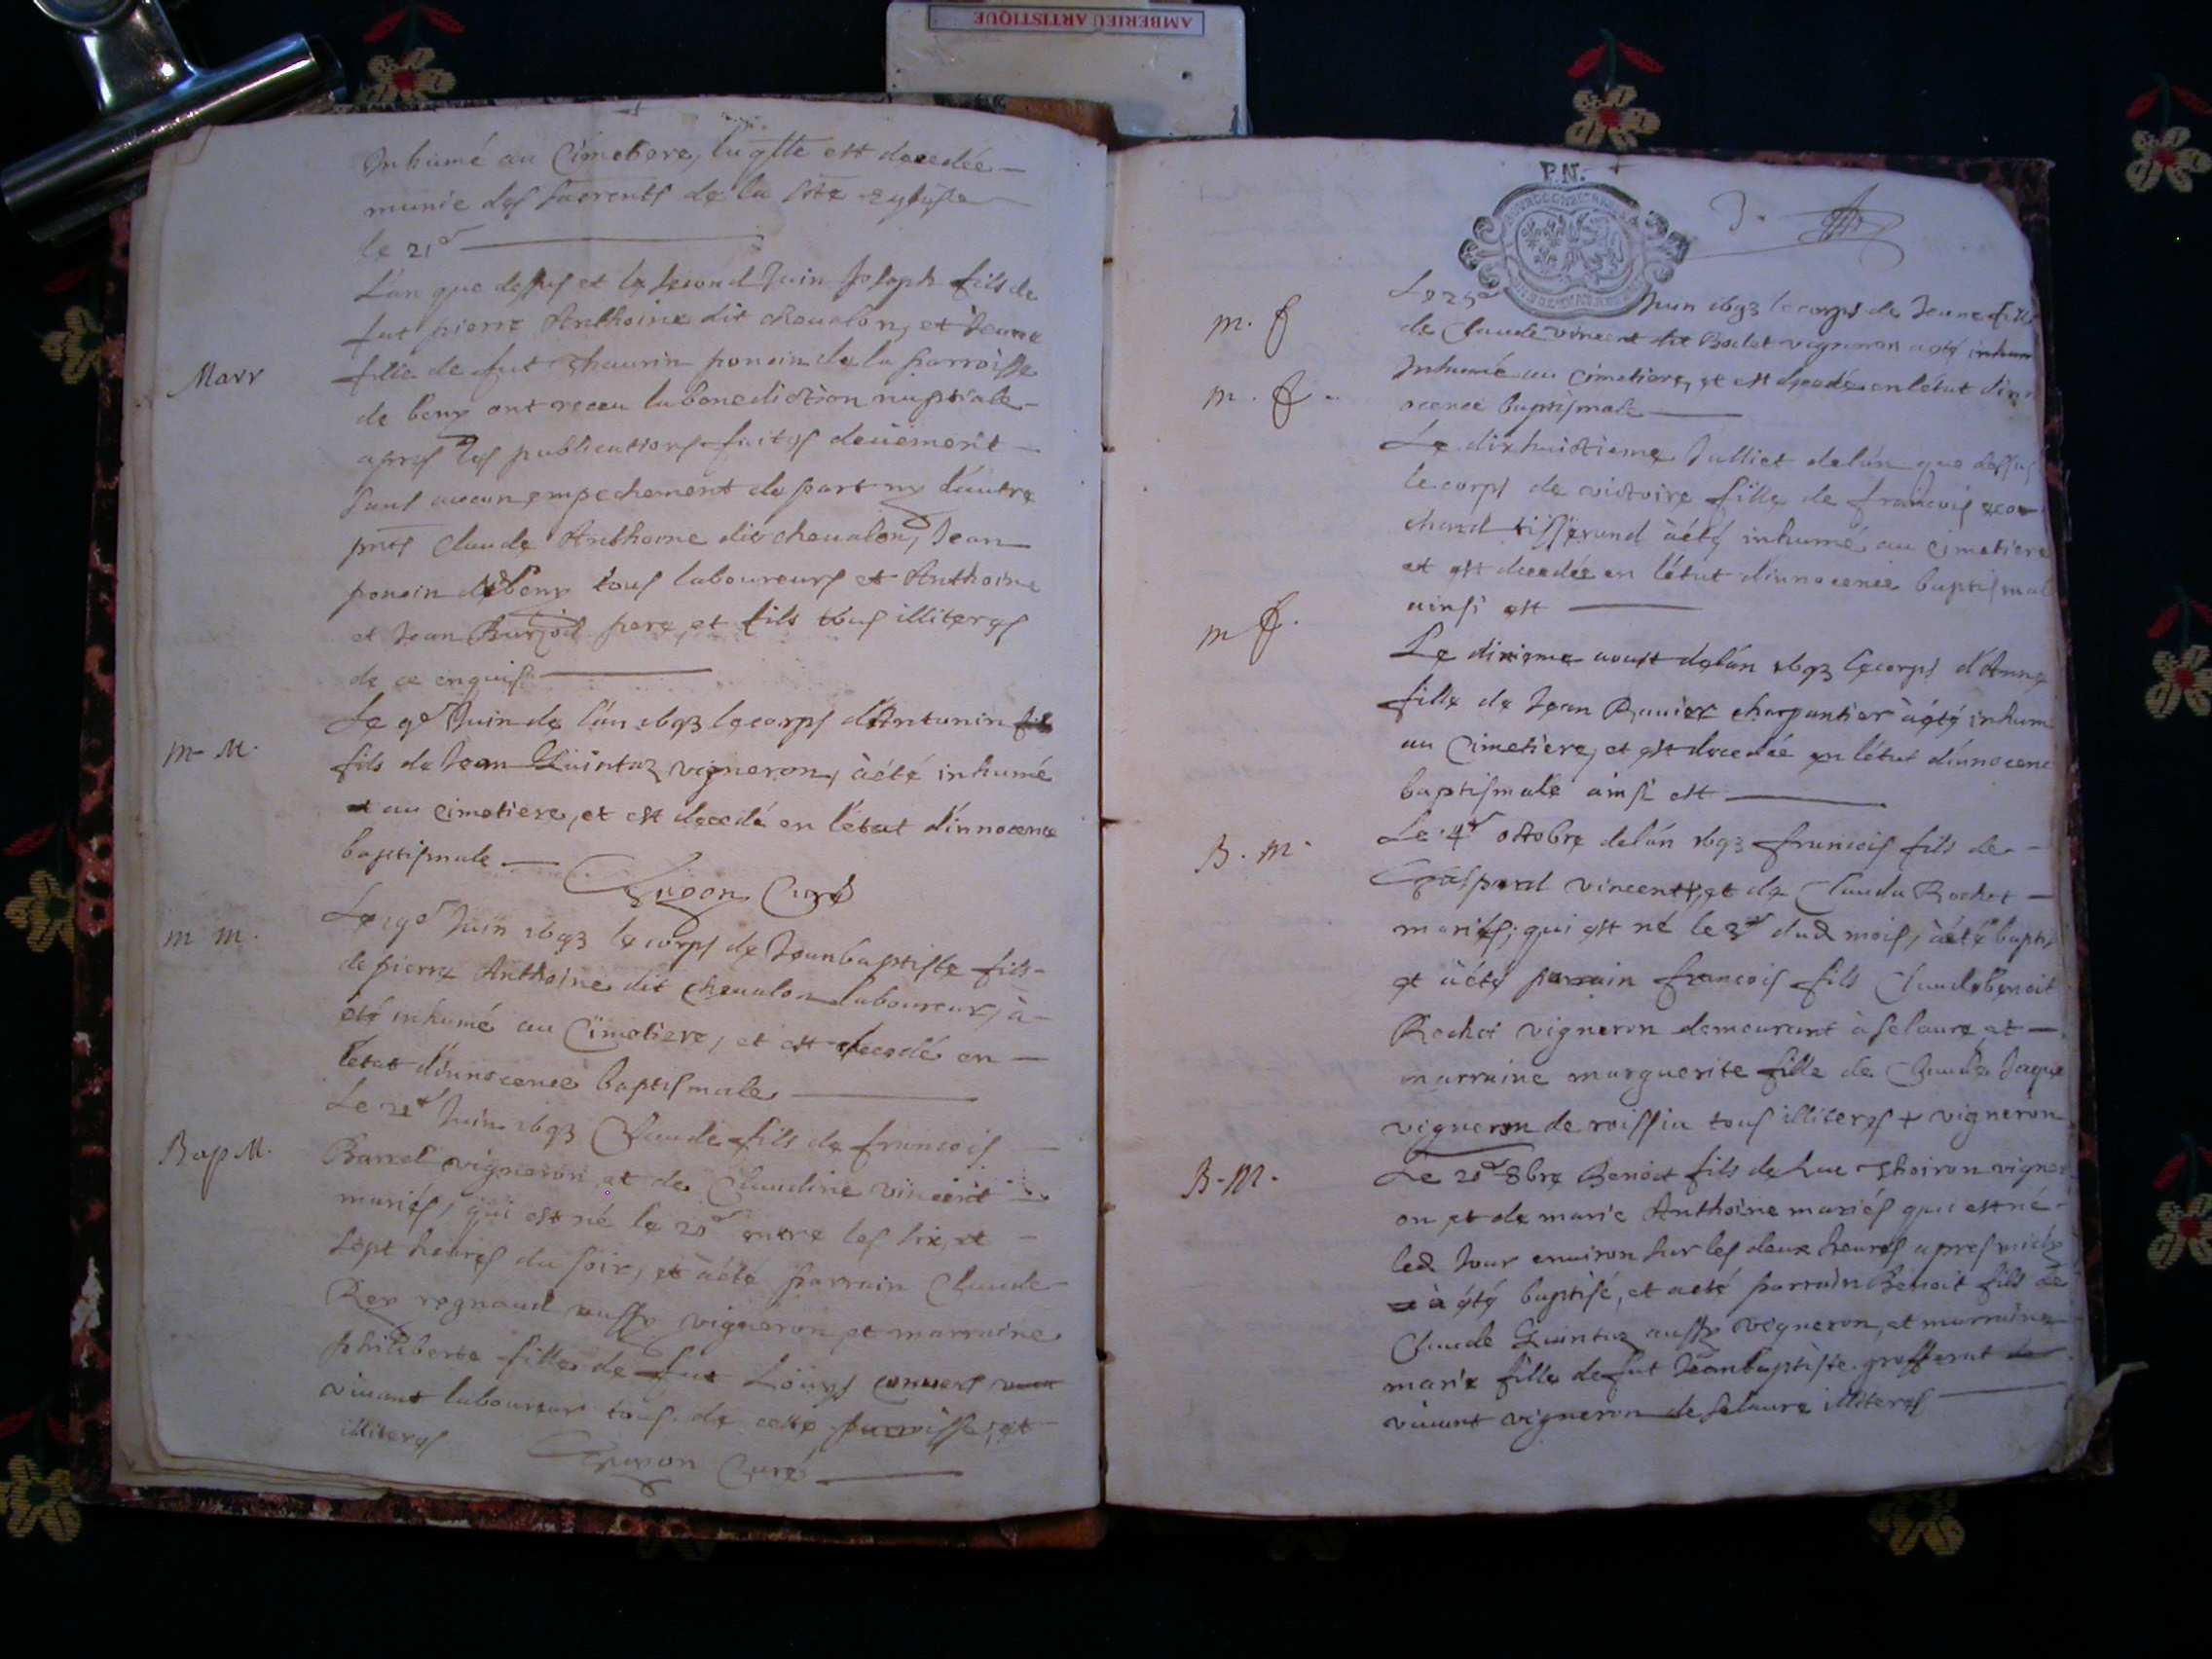 AMBERIEU ARTISTIQUE
Inhumé au Cimetiere, laqlle est decedée
munie des sacrents de la ste
le 21e
L'an que dessus et le second Juin Joseph fils de
fut pierre Anthoine dit cheualon, et Jeanne
Marr
fille de fut poncin de la parroisse
de beny ont receu la benediction nuptiale
apres les publications faites deüement
sans aucun empechement de part ny dautre
pnts Claude Anthoine dit cheualon, Jean
poncin de beny tous laboureurs et Anthoine
et Jean pere et fils tous illiteres
de ce enquis
m. M.
Le 9e Juin de l'an 1693 le corps d'Antonin
fils de Jean Quintaz vigneron, à été inhumé
au cimetiere, et est decedé en l'état d'innocence
baptismale
Curé
m m.
Le 19e Juin 1693 le corps de Jeanbaptiste fils
de pierre Anthoine dit cheualon laboureur, à
été inhumé au Cimetiere, et est decedé en
l'état d'innocence baptismale
Bap M.
Le 21e Juin 1693 Claude fils de francois
Barret vigneron, et de Claudine vincent
mariés, qui est né le 20e entre les six, et
sept heures du soir, et à été parrain Claude
Rey regnaud aussy vigneron et marraine
philiberte fille de fut Loüys
viuant laboureur tous de cette parroisse, et
illiteres
Curé
P.N.
3.
m. f
Le 25e Juin 1693 le corps de Jeanne fille
de Claude vincent dit Bodet vigneron a eté
m. f.
Inhumé au cimetiere, et est decedé en l'état d'inn
ocence baptismale
Le dixhuictieme Julliet de l'an que dessus
le corps de victoire fille de francois
tisserand à été inhumé au cimetiere
et est decedée en l'état d'innocence baptismal
ainsi est
m f.
Le dixieme aoust de l'an 1693 le corps d'Anne
fille de Jean Rauier charpantier à été inhum
au Cimetiere, et est decedée en l'état d'innocenc
baptismale ainsi est
B. m.
Le 4e octobre de l'an 1693 francois fils de
Gaspard vincent +, et de Clauda Rochet
mariés, qui est né le 3e dud mois, à été baptis
et à été parrain francois fils Claude benoit
Rochet vigneron demeurant à selaure et
marraine marguerite fille de Claude Jaque
vigneron de tous illiteres + vigneron
B-M.
Le 20e 8bre Benoit fils de Luc vigner
on et de marie Anthoine mariés qui est né
led Jour enuiron sur les deux heures apres midy
à été baptisé, et a eté parrain Benoit fils de
Claude Quintaz aussy vigneron, et marraine
marie fille de fut Jeanbaptiste
viuant vigneron de selaure illiteres